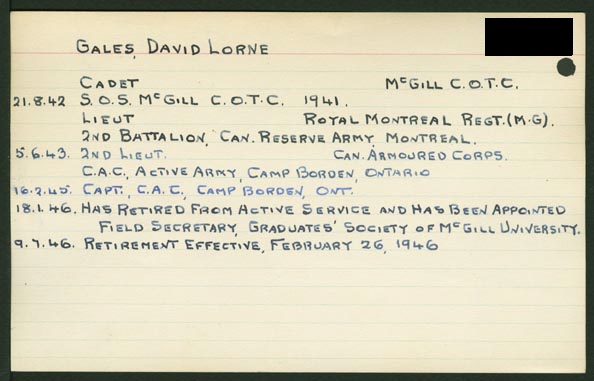 GALES, DAVID LORNE
CADET McGILL C.O.T.C.
21.8.42 S.O.S. McGILL C.O.T.C. 1941.
LIEUT ROYAL MONTREAL REGT.(M-G).
2ND BATTALION, CAN. RESERVE ARMY, MONTREAL.
5.6.43. 2ND LIEUT. CAN. ARMOURED CORPS.
C.A.C., ACTIVE ARMY, CAMP BORDEN, ONTARIO
16.2.45. CAPT., C.A.C., CAMP BORDEN, ONT.
18.1.46. HAS RETIRED FROM ACTIVE SERVICE AND HAS BEEN APPOINTED
FIELD SECRETARY, GRADUATES' SOCIETY OF McGILL UNIVERSITY.
9.7.46. RETIREMENT EFFECTIVE, FEBRUARY 26, 1946